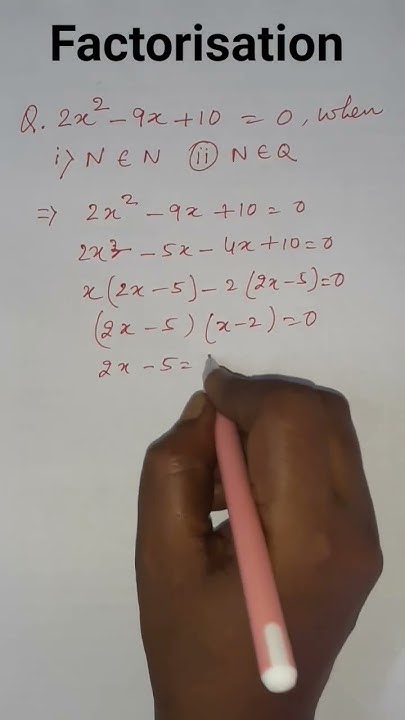 Factorisation
Q. 2x² - 9x + 10 = 0, when
i) N ∈ N (ii) N ∈ Q
⇒ 2x² - 9x + 10 = 0
2x² - 5x - 4x + 10 = 0
x(2x - 5) - 2(2x - 5) = 0
(2x - 5) (x - 2) = 0
2x - 5 =